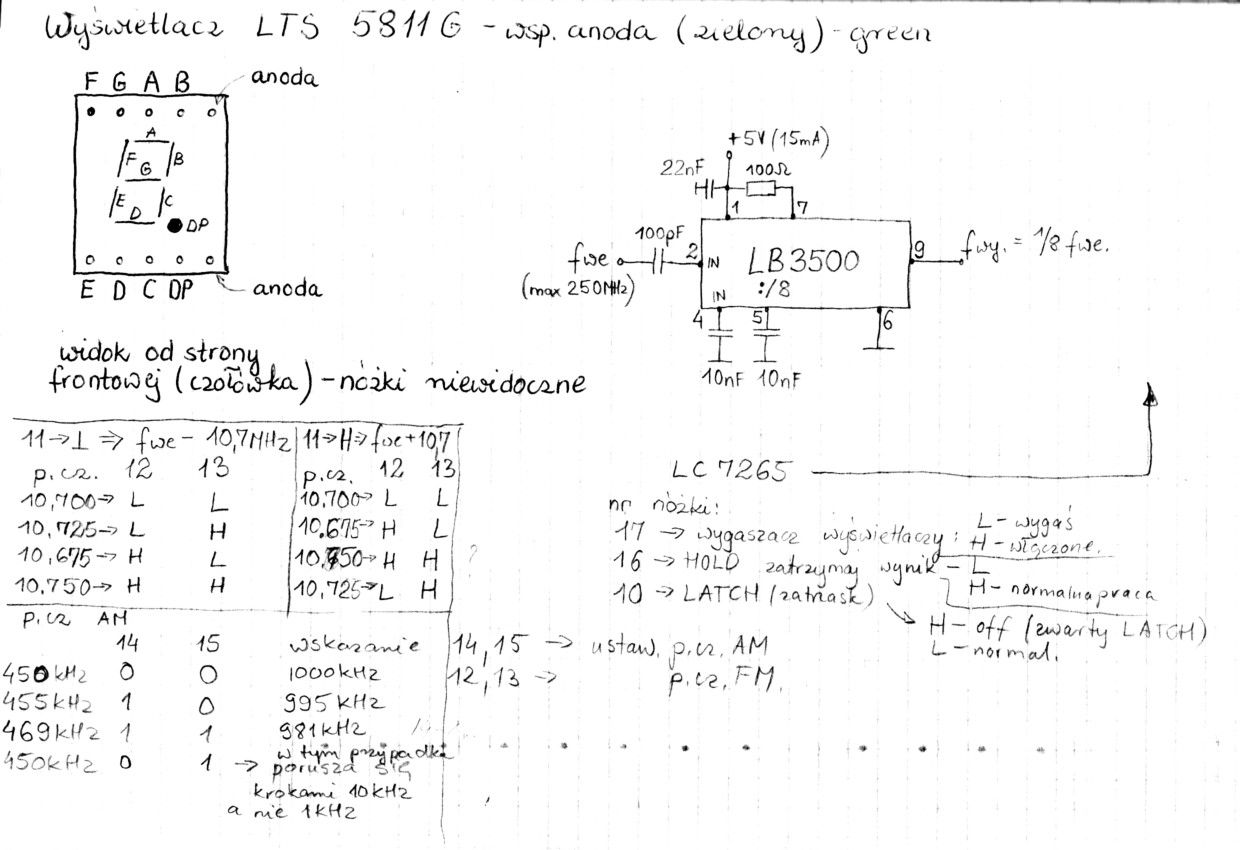 Wyświetlacz LTS 5811G - wsp. anoda (zielony) - green
F G A B anoda
A
F G B
E D C
DP
E D C DP anoda
widok od strony
frontowej (czołówka) - nóżki niewidoczne
+5V (15mA)
22nF 100Ω
1 7
100pF
fwe 2 IN LB3500 9 fwy. = 1/8 fwe.
(max 250MHz) IN :/8
4 5 6
10nF 10nF
11→L ⇒ fwe - 10,7MHz 11→H→fwe+10,7
p.cz. 12 13 p.cz. 12 13
10,700→ L L 10,700→ L L
10,725→ L H 10.675→ H L
10,675→ H L 10,750→ H H ?
10,750→ H H 10,725→ L H
p.cz AM
14 15 wskazanie
450kHz 0 0 1000kHz
455kHz 1 0 995kHz
469kHz 1 1 981kHz
450kHz 0 1 → w tym przypadku
porusza się
krokami 10kHz
a nie 1kHz
LC 7265
nr nóżki:
17 → wygaszacz wyświetlaczy: L - wygaś
H - włączone.
16 → HOLD zatrzymaj wynik - L
H - normalna praca
10 → LATCH (zatrzask)
H - off (zwarty LATCH)
L - normal.
14,15 → ustaw. p.cz. AM
12,13 → p.cz. FM.